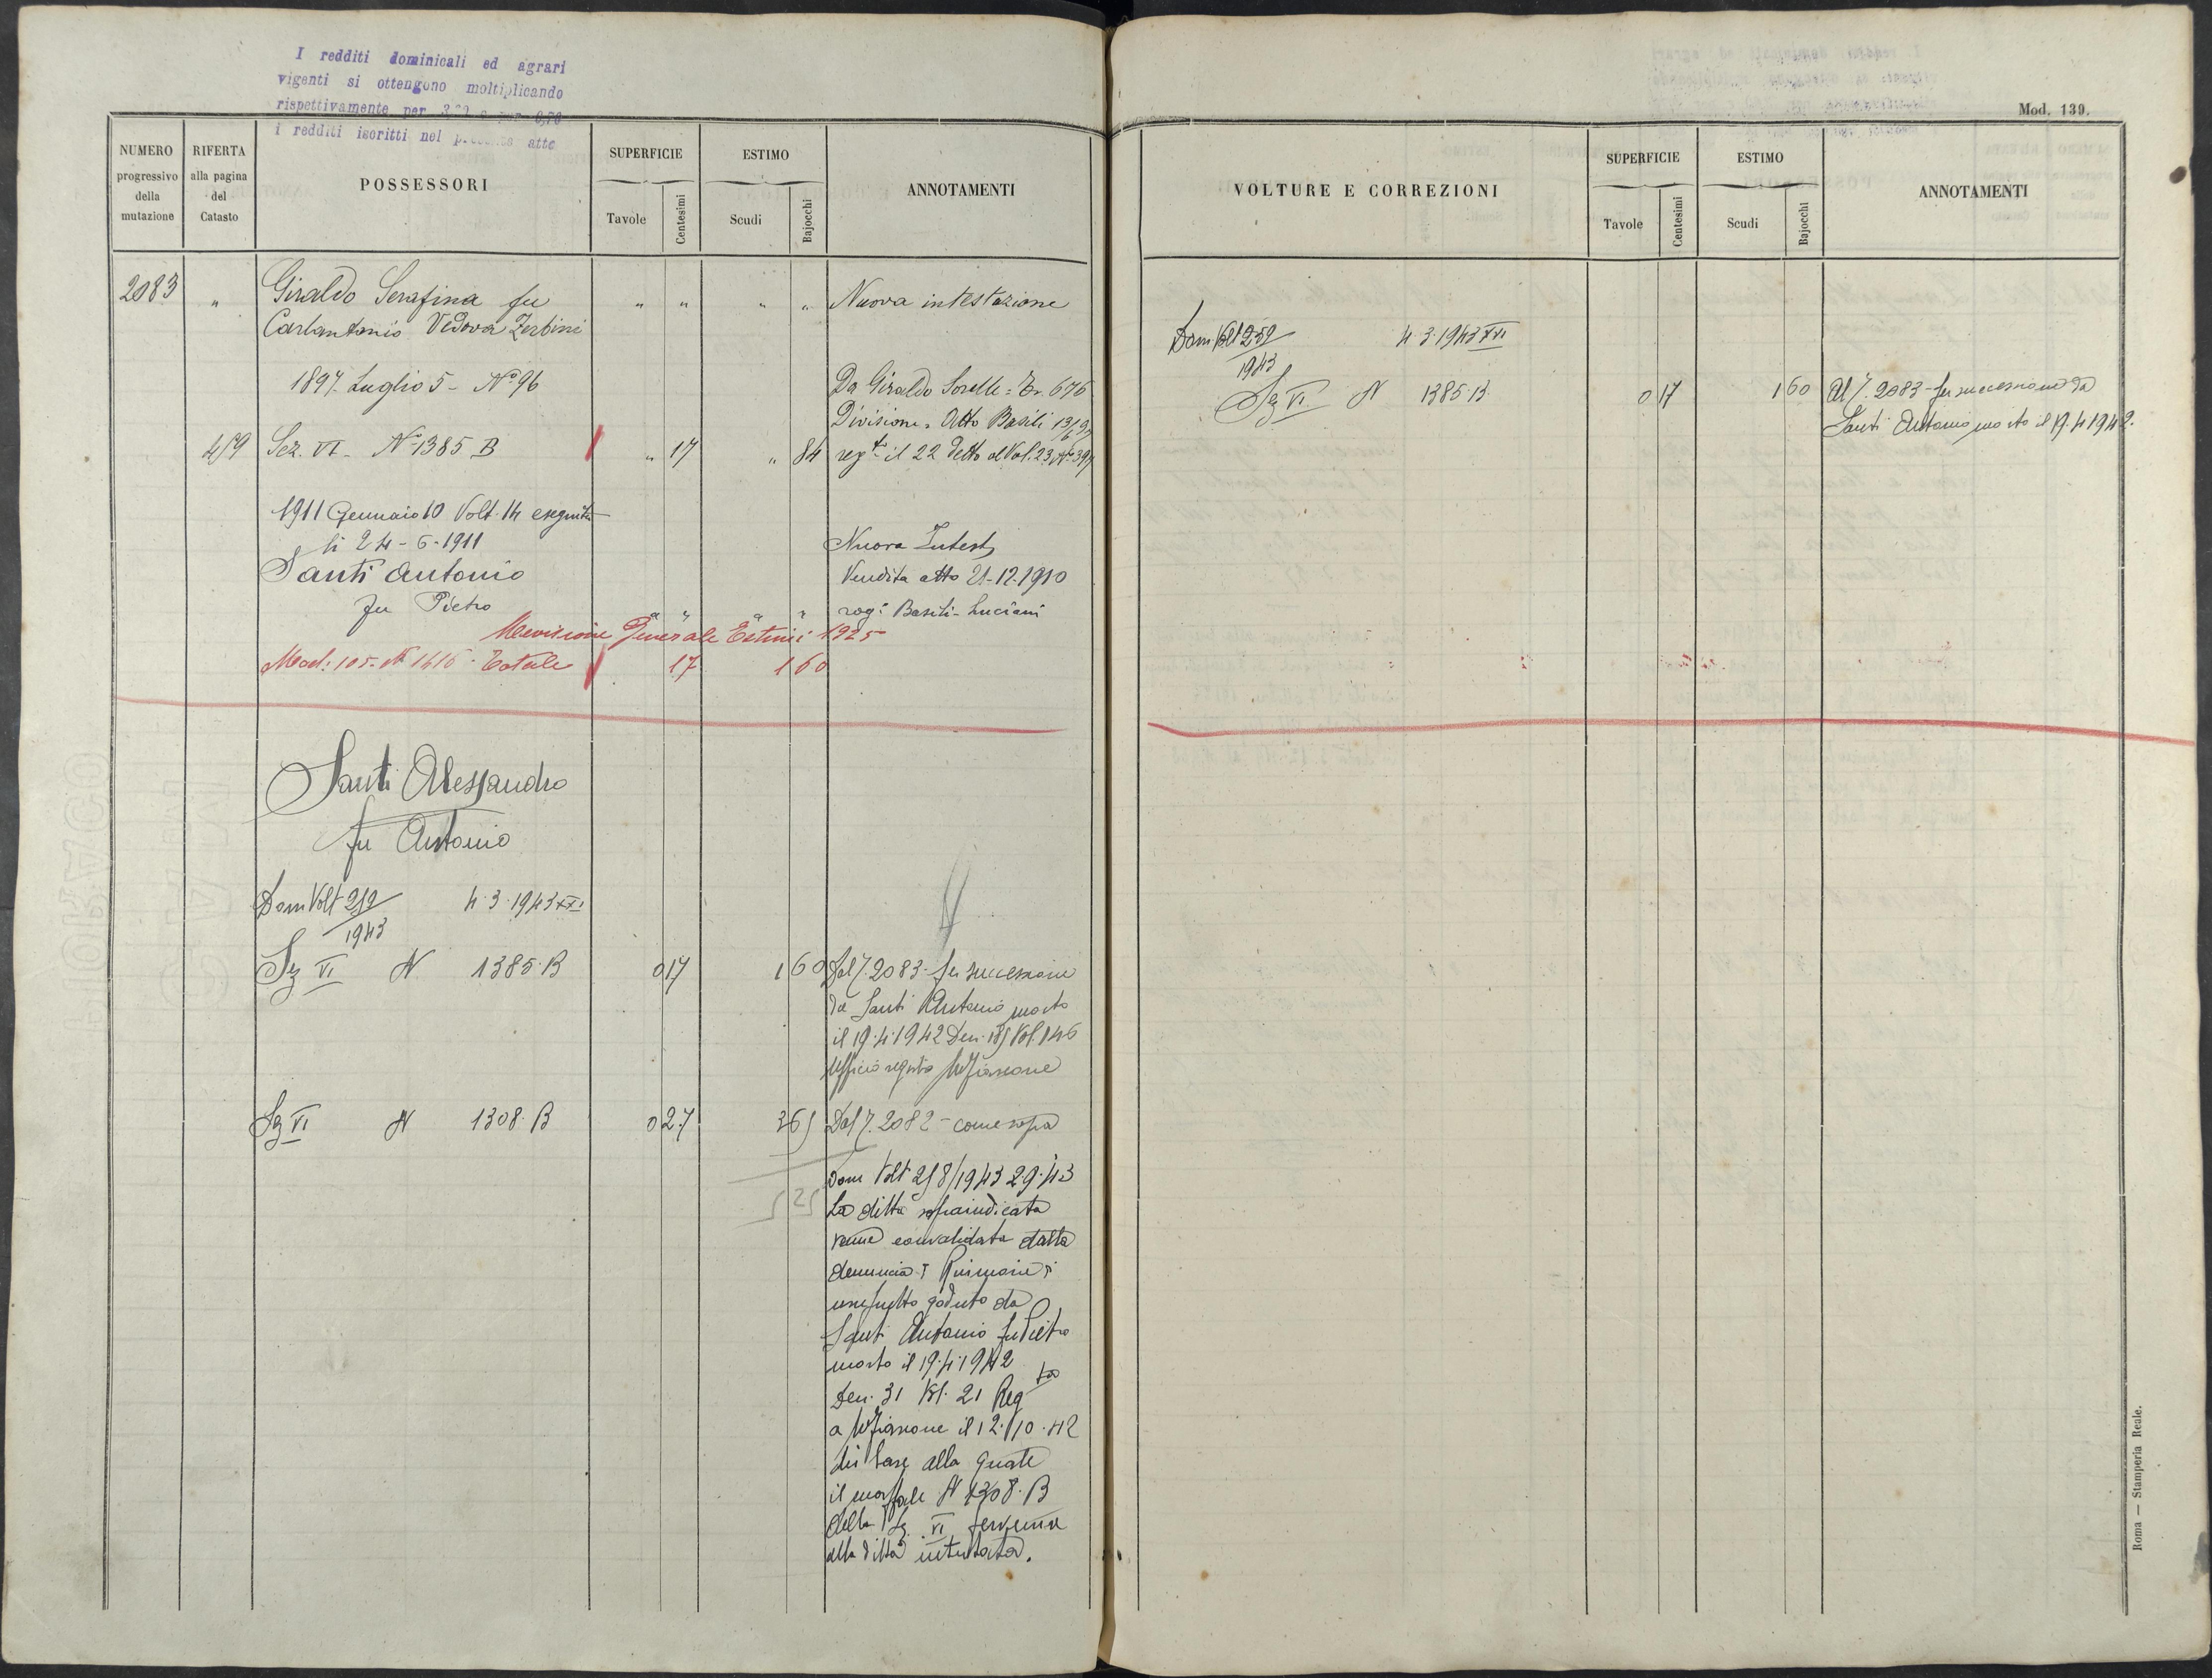 I redditi dominicali ed agrari
vigenti si ottengono moltiplicando
rispettivamente per
i redditi iscritti nel presente atto
NUMERO progressivo della mutazione
RIFERTA alla pagina del Catasto
POSSESSORI
SUPERFICIE
Tavole
Centesimi
ESTIMO
Scudi
Bajocchi
ANNOTAMENTI
2083 " Giraldo Serafina fu " " " " Nuova intestazione
Carlantonio Vedova Zerbini
1897 Luglio 5 - Nº 96 Da Giraldo Sorelle =
Divisione = Atto Basili
419 Sez. VI - Nº 1385 B " 17 " 84 regto il 22 detto al Vol. 23 Nº 397
1911 Gennaio 10 Volt. 14 eseguita
li 24-6-1911 Nuova Intest
Santi Antonio Vendita atto 21-12-1910
fu Pietro " " " " rog: Basili-Luciani
Revisione Generale Estimi 1925
Mod: 105. Nº 1616 - Totale 17 1 60
Santi Alessandro
fu Antonio
Dom Volt 259/1943 4.3.1943 XXI
Sez VI N 1385.B 0 17 1 60 Dal 7. 2083 - per successione
da Santi Antonio morto
il 19.4.1942 Den. Vol. 146
Ufficio registro
Sez VI N 1308.B 0 27 3 65 Dal 7. 2082 - come sopra
5 25
Dom Volt 258/1943 29.43
La ditta sopraindicata
viene convalidata dalla
denuncia
usufrutto goduto da
Santi Antonio fu Pietro
morto il 19.4.1942
Den. 31 Vol. 21 Reg ta
a il 12.10.42
in base alla quale
il mappale N 1308.B
della Sez. VI pervenne
alla ditta intestata.
Mod. 139.
VOLTURE E CORREZIONI
SUPERFICIE
Tavole
Centesimi
ESTIMO
Scudi
Bajocchi
ANNOTAMENTI
Dom Volt 259/1943 4.3.1943 XXI
Sez VI N 1385 B. 0 17 1 60 Al 7. 2083 - per successione da
Santi Antonio morto il 19.4.1942.
Roma — Stamperia Reale.